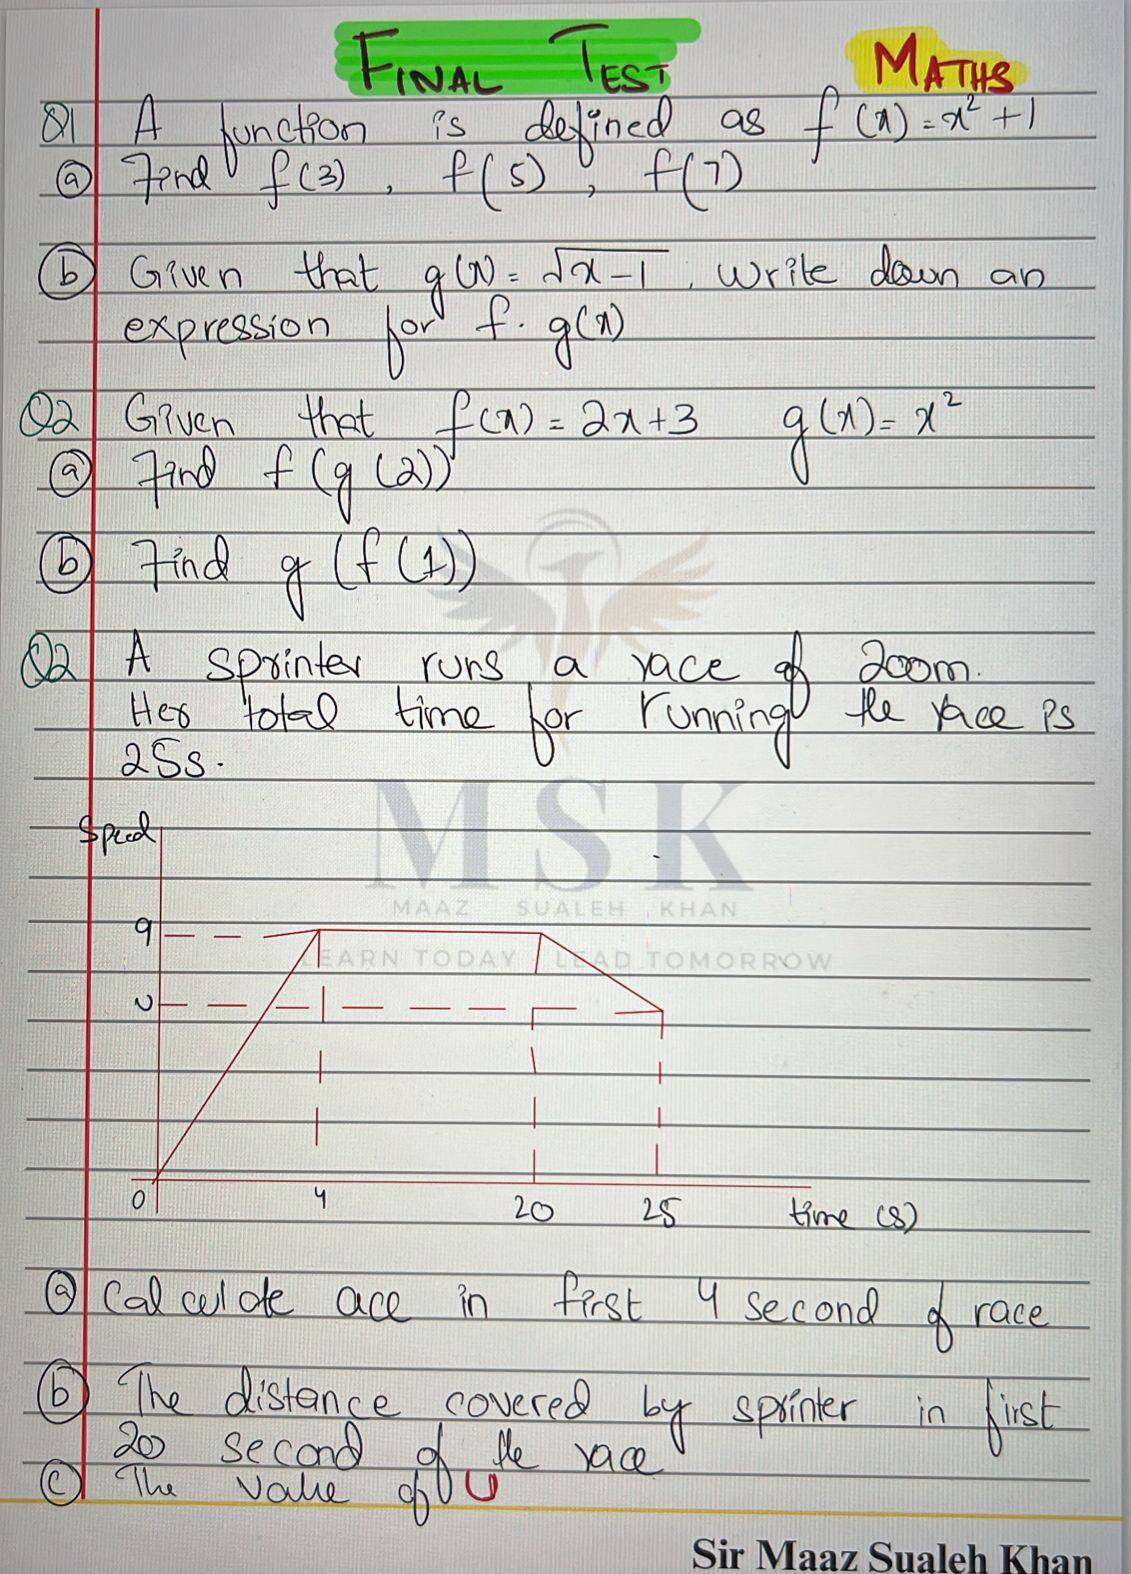 FINAL TEST MATHS
Q1 A function is defined as f(x) = x² + 1
(a) Find f(3), f(5), f(7)
(b) Given that g(x) = √x-1. Write down an
expression for f. g(x)
Q2 Given that f(x) = 2x+3 g(x) = x²
(a) Find f(g(2))
(b) Find g(f(1))
Q2 A sprinter runs a race of 200m.
Her total time for running the race is
25s.
Speed
MSK
MAAZ SUALEH KHAN
9
LEARN TODAY LEAD TOMORROW
υ
0 4 20 25 time (s)
(a) Calculate acc in first 4 second of race
(b) The distance covered by sprinter in first
20 second of the race
(c) The value of υ
Sir Maaz Sualeh Khan